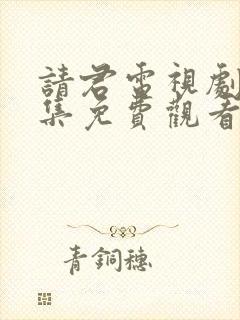 請君電視劇
集免費觀看
青銅穗